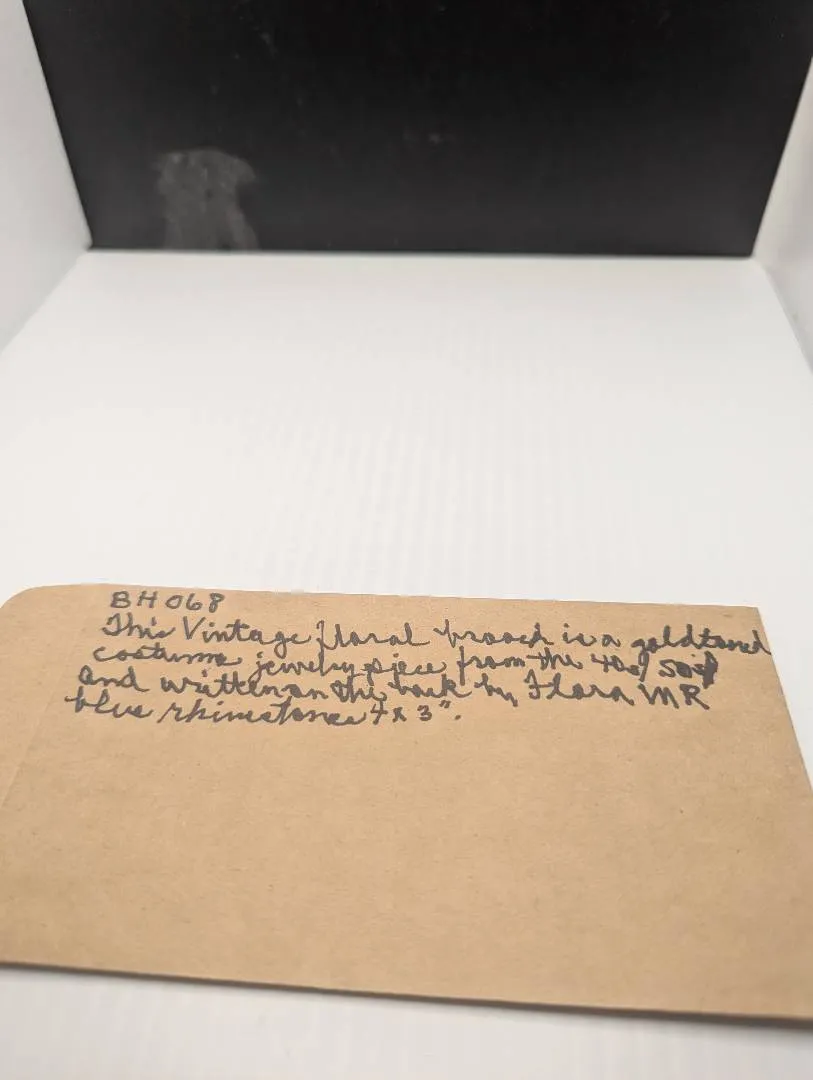 BH068
This Vintage floral brooch is a goldtoned
costume jewelry piece from the 40s/50s
and written on the back by Flora MR
blue rhinestones 4 x 3".